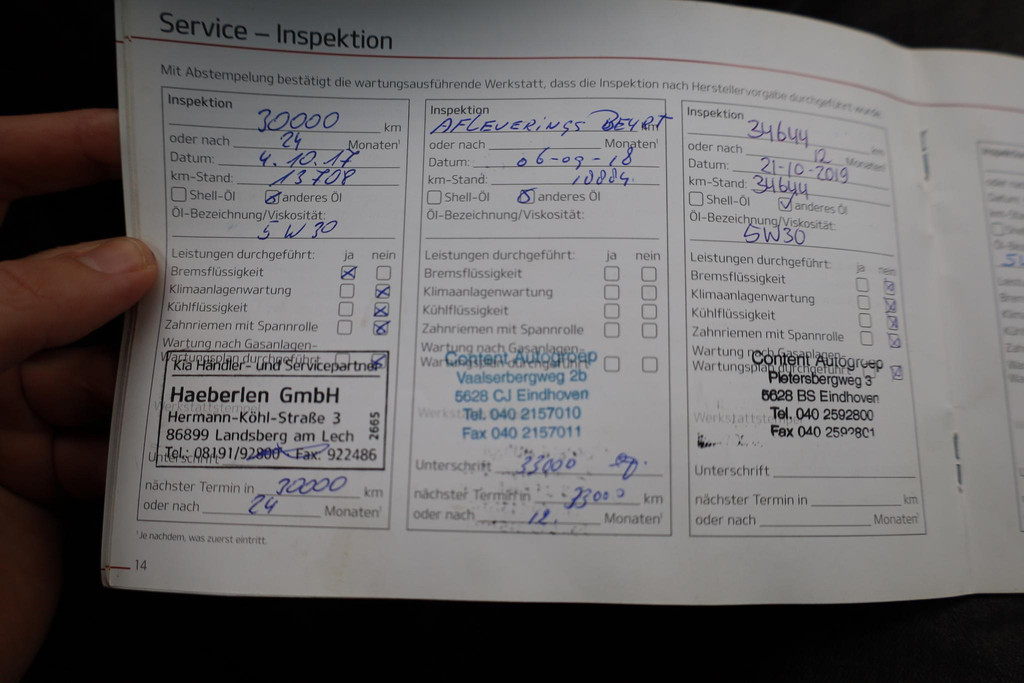 Service – Inspektion
Mit Abstempelung bestätigt die wartungsausführende Werkstatt, dass die Inspektion nach Herstellervorgabe durchgeführt wurde.
Inspektion
30000 km
oder nach 24 Monaten¹
Datum: 4.10.17
km-Stand: 13708
Shell-Öl anderes Öl
Öl-Bezeichnung/Viskosität:
5W30
Leistungen durchgeführt: ja nein
Bremsflüssigkeit
Klimaanlagenwartung
Kühlflüssigkeit
Zahnriemen mit Spannrolle
Wartung nach Gasanlagen-
Wartungsplan durchgeführt
Kia Händler- und Servicepartner
Haeberlen GmbH
Hermann-Köhl-Straße 3
86899 Landsberg am Lech
Tel.: 08191/92800 Fax: 922486
2665
Unterschrift
nächster Termin in 30000 km
oder nach 24 Monaten¹
Inspektion
AFLEVERINGS BEURT km
oder nach Monaten¹
Datum: 06-09-18
km-Stand: 18884
Shell-Öl anderes Öl
Öl-Bezeichnung/Viskosität:
Leistungen durchgeführt: ja nein
Bremsflüssigkeit
Klimaanlagenwartung
Kühlflüssigkeit
Zahnriemen mit Spannrolle
Wartung nach Gasanlagen-
Wartungsplan durchgeführt
Content Autogroep
Vaalserbergweg 2b
5628 CJ Eindhoven
Tel. 040 2157010
Fax 040 2157011
Unterschrift 33000
nächster Termin in 33000 km
oder nach 12 Monaten¹
Inspektion
34644 km
oder nach 12 Monaten¹
Datum: 21-10-2019
km-Stand: 34644
Shell-Öl anderes Öl
Öl-Bezeichnung/Viskosität:
5W30
Leistungen durchgeführt: ja nein
Bremsflüssigkeit
Klimaanlagenwartung
Kühlflüssigkeit
Zahnriemen mit Spannrolle
Wartung nach Gasanlagen-
Wartungsplan durchgeführt
Content Autogroep
Pietersbergweg 3
5628 BS Eindhoven
Tel. 040 2592800
Fax 040 2592801
Werkstattstempel
Unterschrift
nächster Termin in km
oder nach Monaten¹
¹Je nachdem, was zuerst eintritt.
14